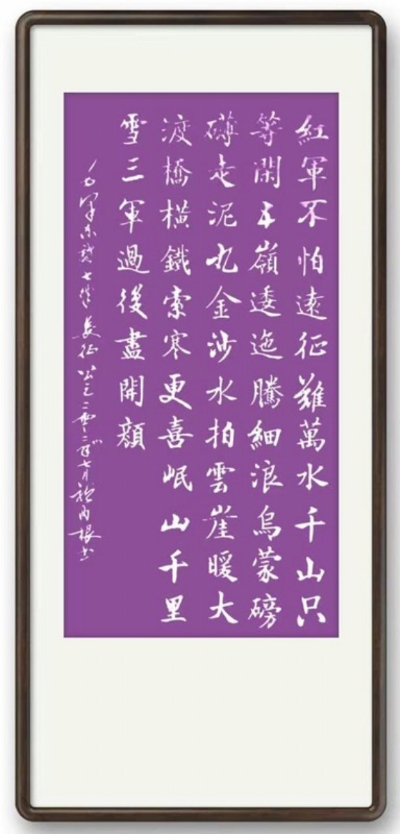 紅軍不怕遠征難萬水千山只
等閑五嶺逶迤騰細浪烏蒙磅
礴走泥丸金沙水拍雲崖暖大
渡橋橫鐵索寒更喜岷山千里
雪三軍過後盡開顏
澤东詩七律長征公元二零二年七月书